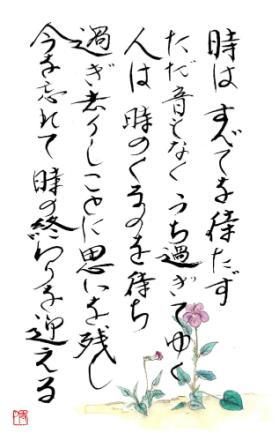 時は すべてを待たず
ただ音もなく うち過ぎてゆく
人は 時のくるのを待ち
過ぎ去りしことに思いを残し
今を忘れて 時の終わりを迎える